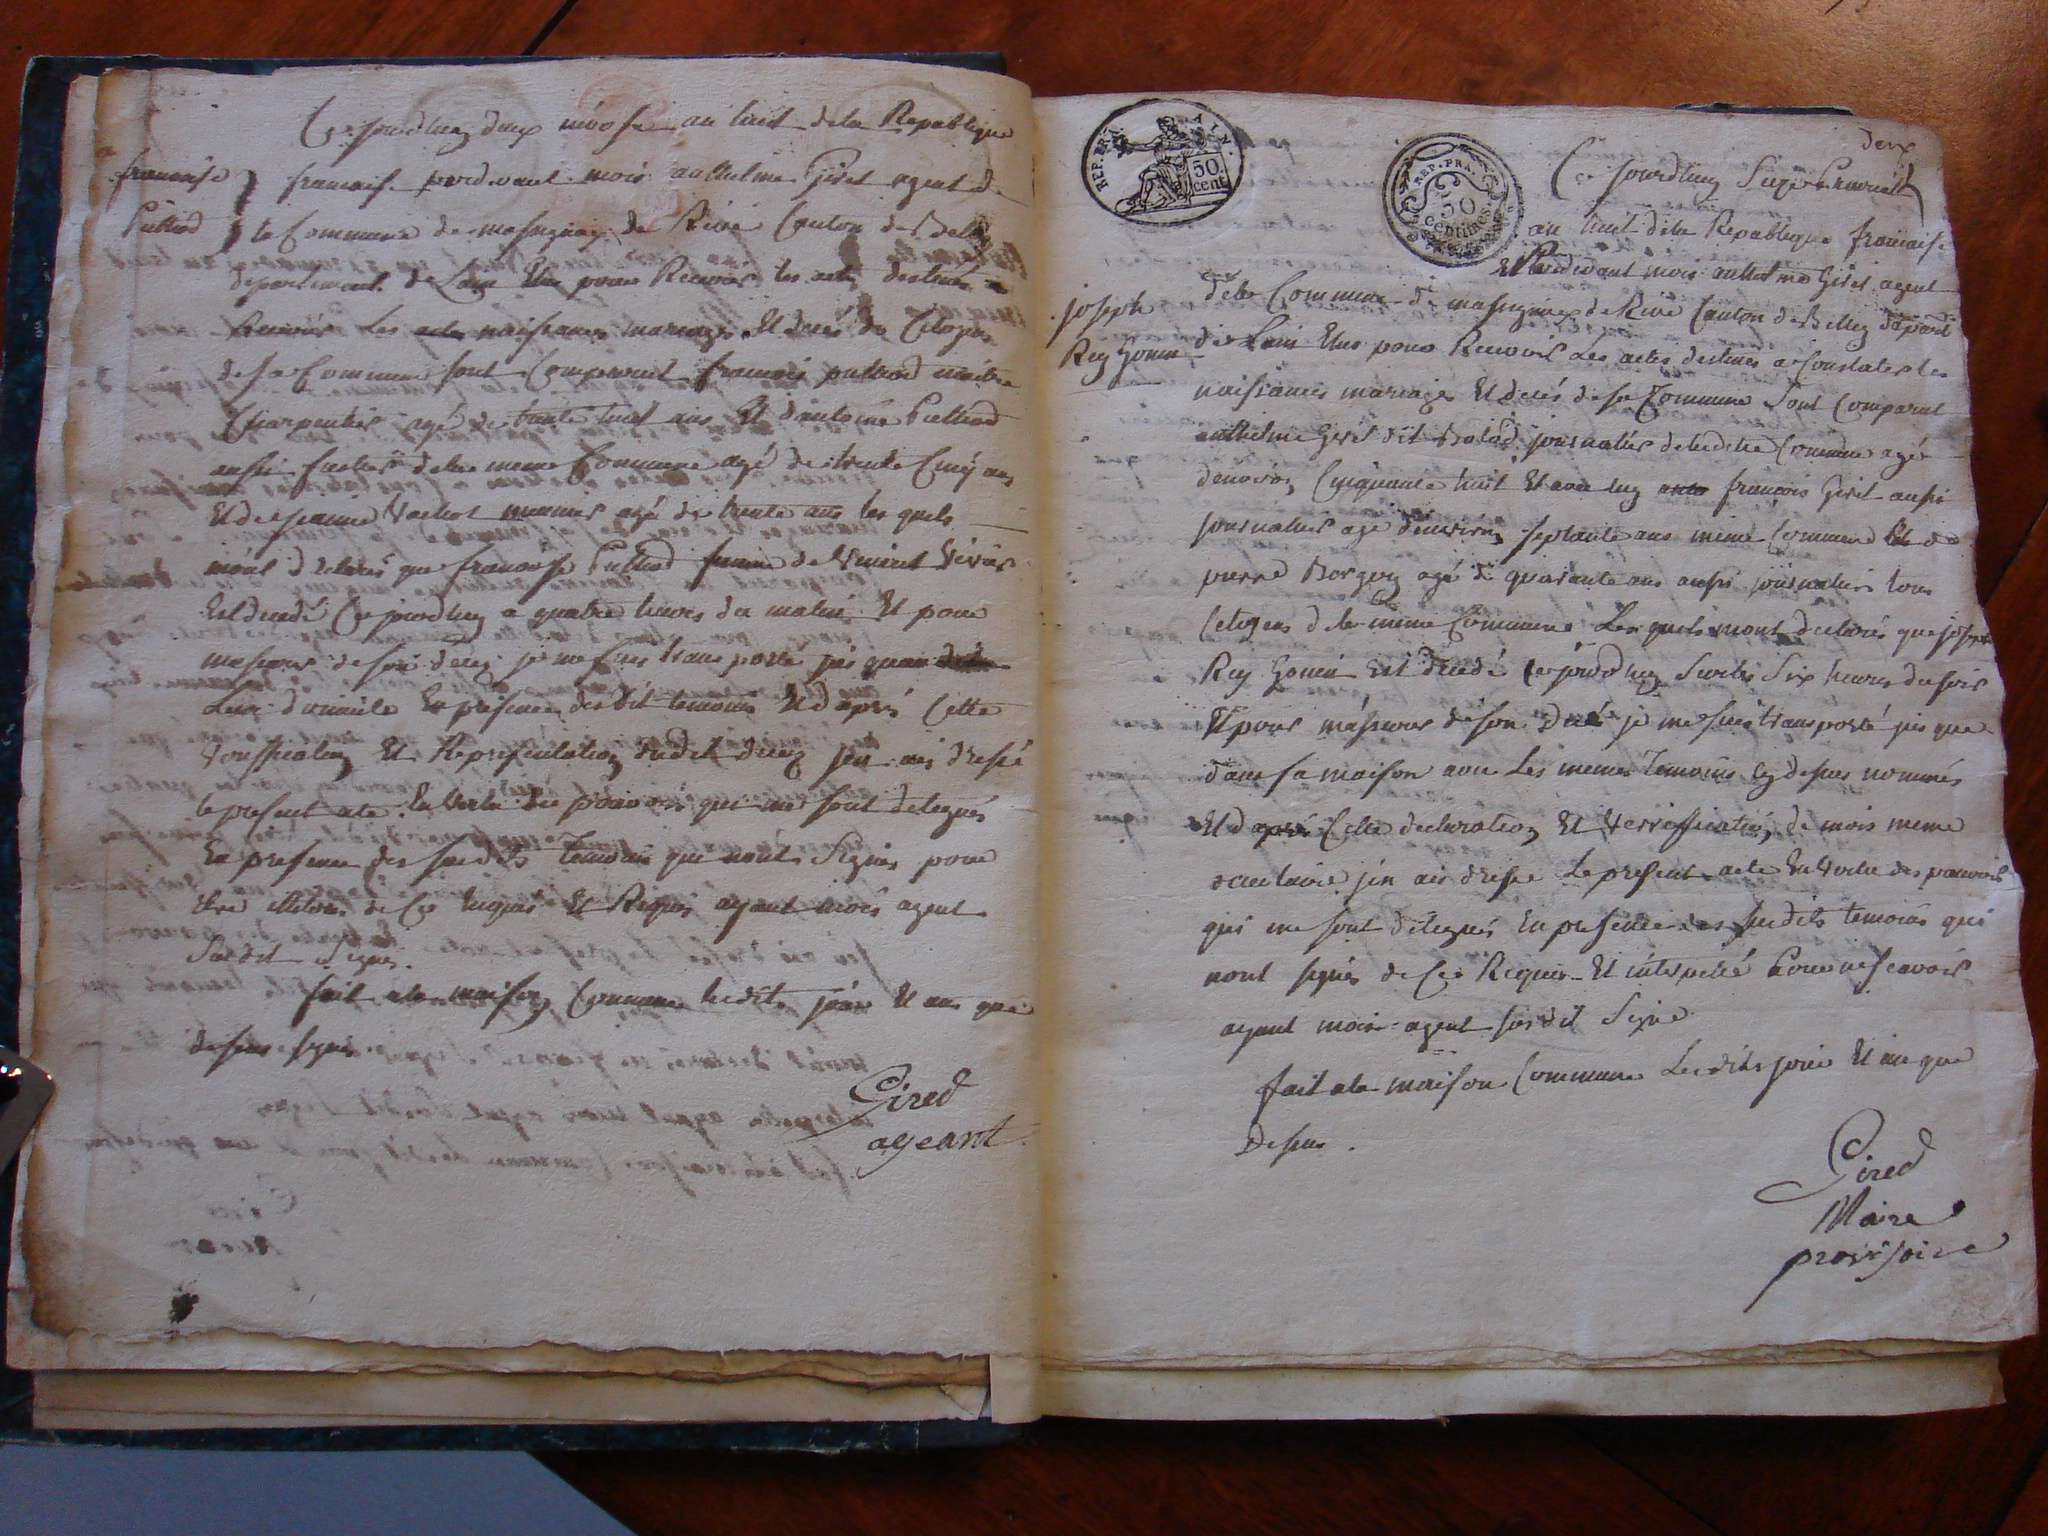 Ce jourdhuy deux nivose an huit dela Republique
francoise francaise pardevant mois anthelme Giret agent de
Pulliod la Commune de massignieu de Rive Canton de Belley
departement de Lain Elu pour Recevoir les actes destinés a
Recevoir Les actes naissances mariages Et decés des Citoyens
de sa Commune sont Comparuit francois pulliod maitre
Charpentier agé de trante huit ans Et dantoine Pulliod
aussi dela meme Commune agé de trente Cinq ans
Et de Vachot agé de trente ans les quels
mont declarés que francoise Pulliod famme de Vincent
Est decedé Ce jourdhuy a quatre heures du matin Et pour
massurer de son decez je me suis transporté jus quan
Leur domicile En présence des dit temoins Et dapres Cette
Et Representation dudit decez jen ais dressé
le present acte En vertu des pouvoirs qui me sont delegués
En presence des susdits Temoins que nonts Signés pour
Etre de Ce Enquis Et Requis ayant mois agent
Susdit Signé.
fait ala maison Commune lesdits jour Et ans que
dessus signé
Gired
ageant
REP. FRA. AIN. 50 cent.
REP. FRA. 50 Centimes
deux
Ce jourdhuy Seize
an huit dela Republique francaise
Pardevant mois anthelme Giret agent
joseph
Rey Gonin
dela Commune de massignieu de Rive Canton de Belley depart
de Lain Elus pour Recevoir Les actes destinés a Constater les
naissances mariages Et decés de sa Commune Sont Comparut
anthelme Giret dit journalier deladite Commune agé
denviron Cinquante huit Et avec luy francois Giret aussi
journalier agé denviron septante ans meme Commune Et de
pierre Borgey agé de quarante ans aussi journalier tous
Citoyens dela meme Commune Les quels mont declarés que joseph
Rey Gonin Est decedé Ce jourdhuy Surles Six heures du soir
Et pour massurer de son decés je me suis transporté jus que
dans sa maison avec Les memes Temoins Cy dessus nommés
Et dapres Cette declaration Et Verriffication de mois meme
occulaire jen ais dressé Le present acte En Vertu des pouvoirs
qui me sont délegués En presence des susdits temoins qui
nont signés de Ce Requis Et interpellé Pour ne scavoir
ayant mois agent susdit Signé
fait ala maison Commune Lesdits jour Et an que
Dessus .
Gired
Maire
provisoire